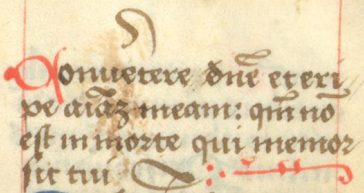 Convertere dñe et eri
pe aĩaz meam: qm̃ nõ
est in morte qui memor
sit tui